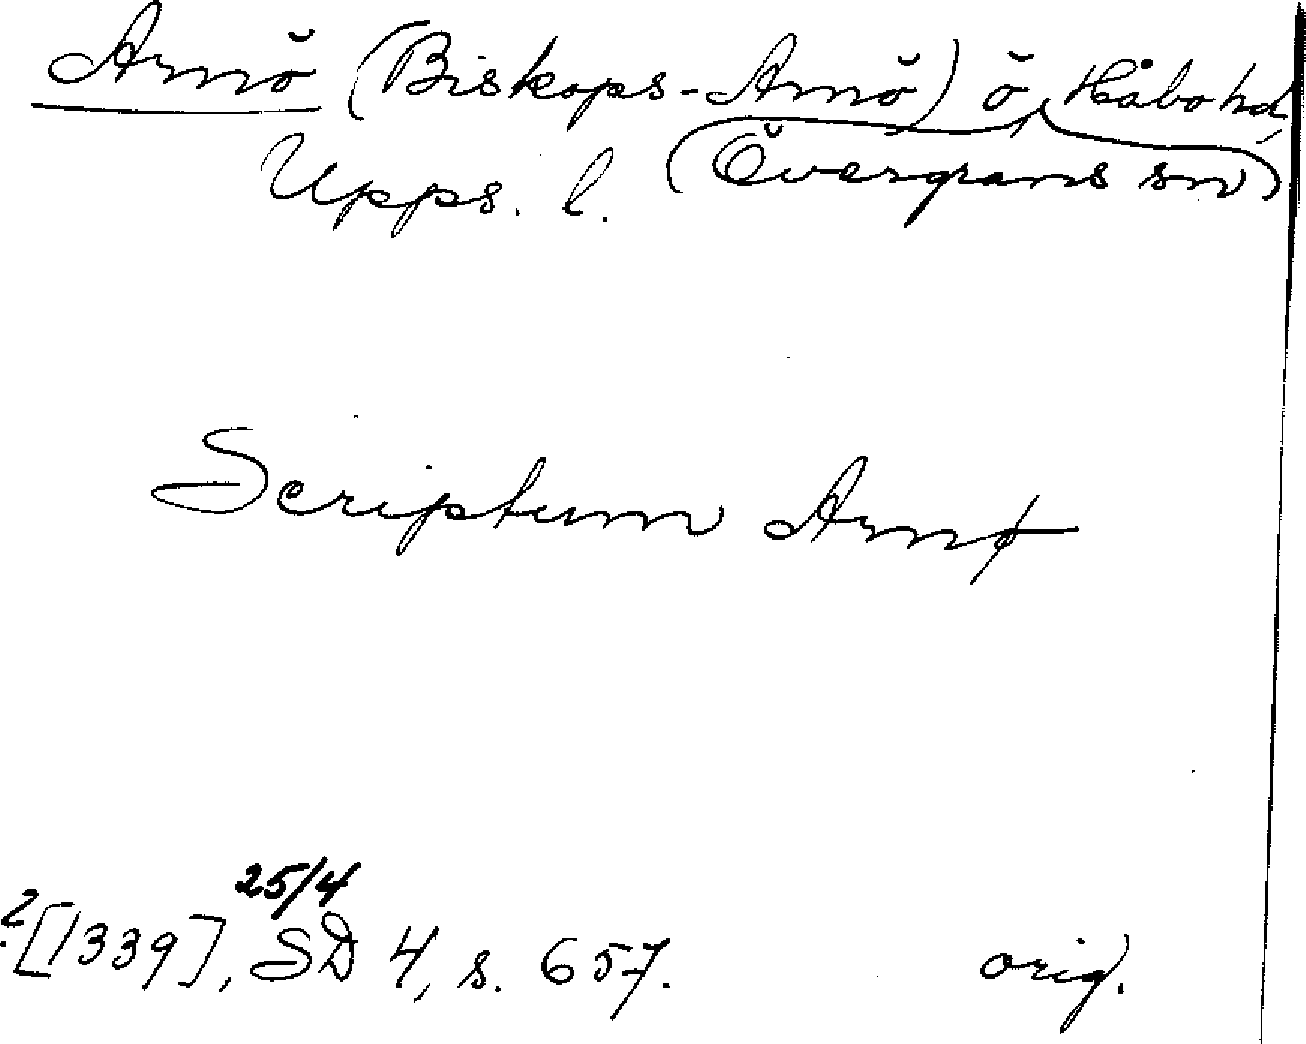 Arnö (Biskops-Arnö) ö, Håbo hd,
Upps. l. (Övergrans sn)
Scriptum Arnø
25/4
?[1339], SD 4, s. 657. orig.